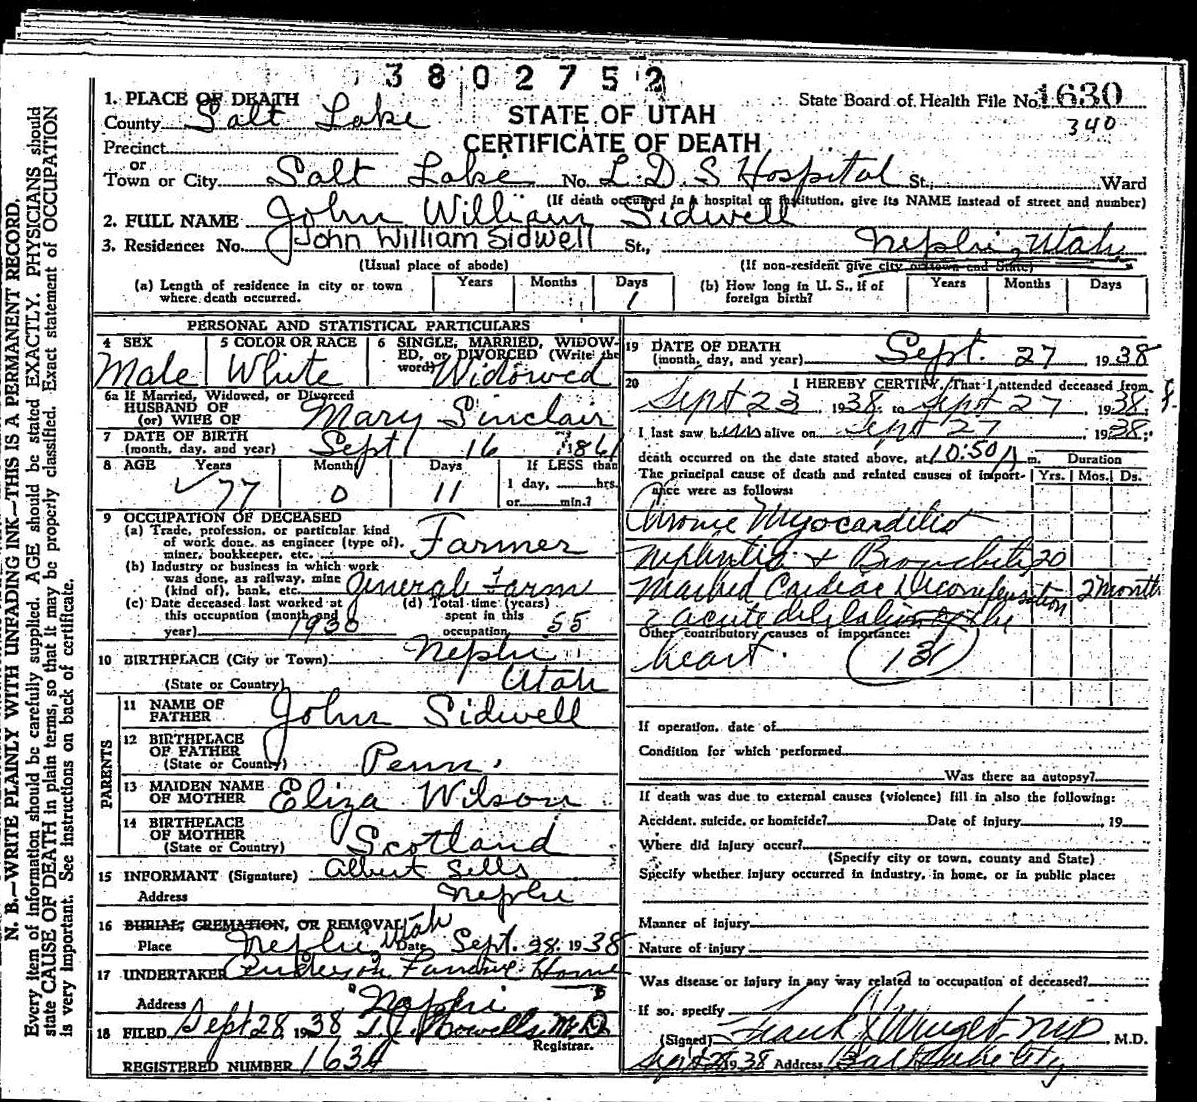 3802752
1. PLACE OF DEATH
STATE OF UTAH
CERTIFICATE OF DEATH
State Board of Health File No. 1630
340
County Salt Lake
Precinct
or
Town or City Salt Lake No. L.D.S Hospital St., Ward
(If death occurred in a hospital or institution, give its NAME instead of street and number)
2. FULL NAME John William Sidwell
3. Residence: No. John William Sidwell St., Nephi, Utah
(Usual place of abode) (If non-resident give city or town and State)
(a) Length of residence in city or town where death occurred. Years Months Days 1
(b) How long in U. S., if of foreign birth? Years Months Days
PERSONAL AND STATISTICAL PARTICULARS
4 SEX Male
5 COLOR OR RACE White
6 SINGLE, MARRIED, WIDOWED, or DIVORCED (Write the word) Widowed
6a If Married, Widowed, or Divorced
HUSBAND OF
(or) WIFE OF Mary Sinclair
7 DATE OF BIRTH
(month, day, and year) Sept 16 1861
8 AGE Years 77 Months 0 Days 11 If LESS than
1 day, hrs.
or min.?
9 OCCUPATION OF DECEASED
(a) Trade, profession, or particular kind
of work done, as engineer (type of),
miner, bookkeeper, etc. Farmer
(b) Industry or business in which work
was done, as railway, mine
(kind of), bank, etc. General Farm
(c) Date deceased last worked at
this occupation (month and
year) 1930
(d) Total time (years)
spent in this
occupation 55
10 BIRTHPLACE (City or Town) Nephi
(State or Country) Utah
PARENTS
11 NAME OF
FATHER John Sidwell
12 BIRTHPLACE
OF FATHER
(State or Country) Penn.
13 MAIDEN NAME
OF MOTHER Eliza Wilson
14 BIRTHPLACE
OF MOTHER
(State or Country) Scotland
15 INFORMANT (Signature) Albert Sells
Address Nephi
16 BURIAL, CREMATION, OR REMOVAL Utah
Place Nephi Utah Date Sept. 28, 1938
17 UNDERTAKER Anderson Funeral Home
Address Nephi
18 FILED Sept 28, 1938
Registrar.
REGISTERED NUMBER 1630
19 DATE OF DEATH
(month, day, and year) Sept. 27 1938
20 I HEREBY CERTIFY, That I attended deceased from
Sept 23, 1938, to Sept 27, 1938.
I last saw him alive on Sept 27, 1938.
death occurred on the date stated above, at 10:50 A m. Duration
The principal cause of death and related causes of importance were as follows: Yrs. Mos. Ds.
Chronic Myocarditis
Nephritis & Bronchitis 20
Marked Cardiac Decompensation 2 months
acute dilatation of the
Other contributory causes of importance:
heart. 131
If operation, date of
Condition for which performed
Was there an autopsy?
If death was due to external causes (violence) fill in also the following:
Accident, suicide, or homicide? Date of injury , 19
Where did injury occur?
(Specify city or town, county and State)
Specify whether injury occurred in industry, in home, or in public place:
Manner of injury
Nature of injury
Was disease or injury in any way related to occupation of deceased?
If so, specify
(Signed) Frank J Winget MD M.D.
Sept 28 1938 Address Salt Lake City
N. B.—WRITE PLAINLY WITH UNFADING INK—THIS IS A PERMANENT RECORD.
Every item of information should be carefully supplied. AGE should be stated EXACTLY. PHYSICIANS should
state CAUSE OF DEATH in plain terms, so that it may be properly classified. Exact statement of OCCUPATION
is very important. See instructions on back of certificate.